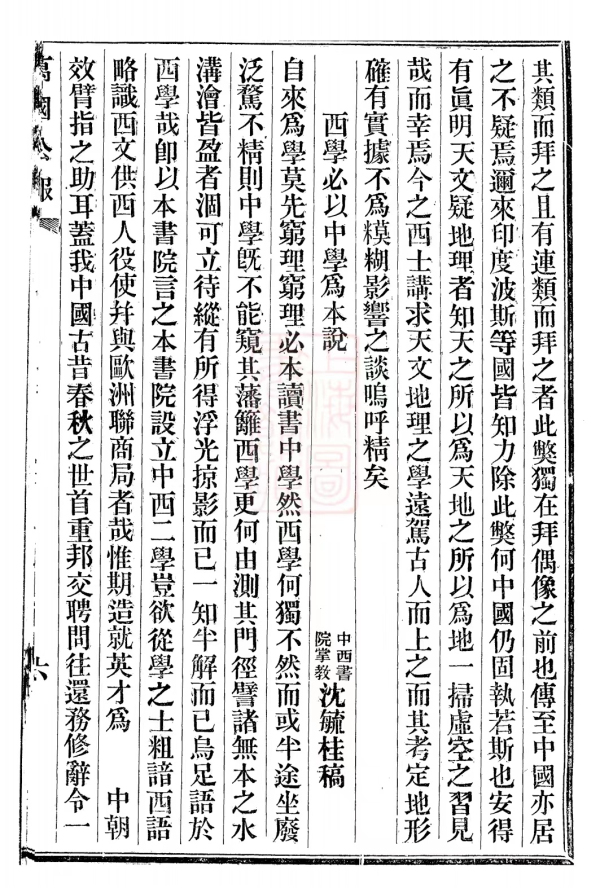 其類而拜之且有連類而拜之者此獘獨在拜偶像之前也傳至中國亦居
之不疑焉邇來印度波斯等國皆知力除此獘何中國仍固執若斯也安得
有眞明天文疑地理者知天之所以爲天地之所以爲地一掃虛空之習見
哉而幸焉今之西士講求天文地理之學遠駕古人而上之而其考定地形
確有實據不爲糢糊影響之談嗚呼精矣
西學必以中學爲本說
中西書院掌教沈毓桂稿
自來爲學莫先窮理窮理必本讀書中學然西學何獨不然而或半途坐廢
泛騖不精則中學旣不能窺其藩籬西學更何由測其門徑譬諸無本之水
溝澮皆盈者涸可立待縱有所得浮光掠影而已一知半解而已烏足語於
西學哉卽以本書院言之本書院設立中西二學豈欲從學之士粗諳西語
略識西文供西人役使幷與歐洲聯商局者哉惟期造就英才爲 中朝
效臂指之助耳蓋我中國古昔春秋之世首重邦交聘問往還務修辭令一
萬國公報
六